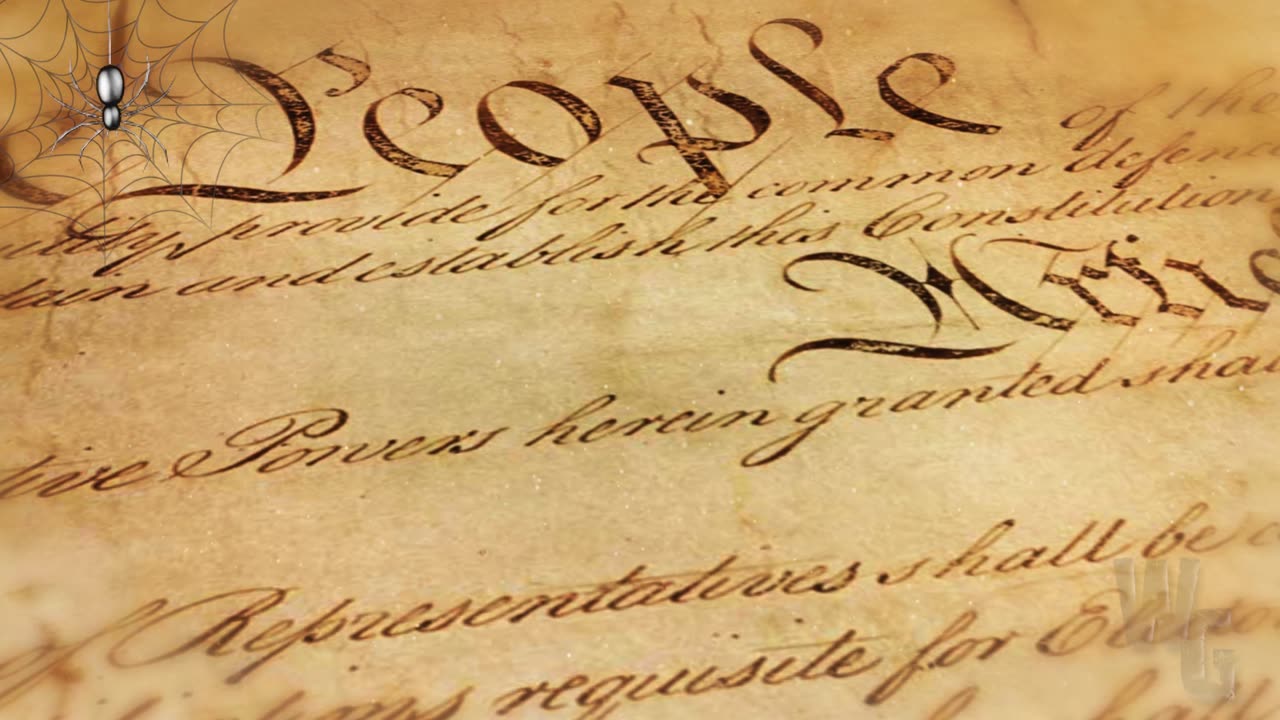 People of the
provide for the common defence
tain and establish this Constitution
Artic
tive Powers herein granted shall
of Representatives shall be
requisite for Elec
WG